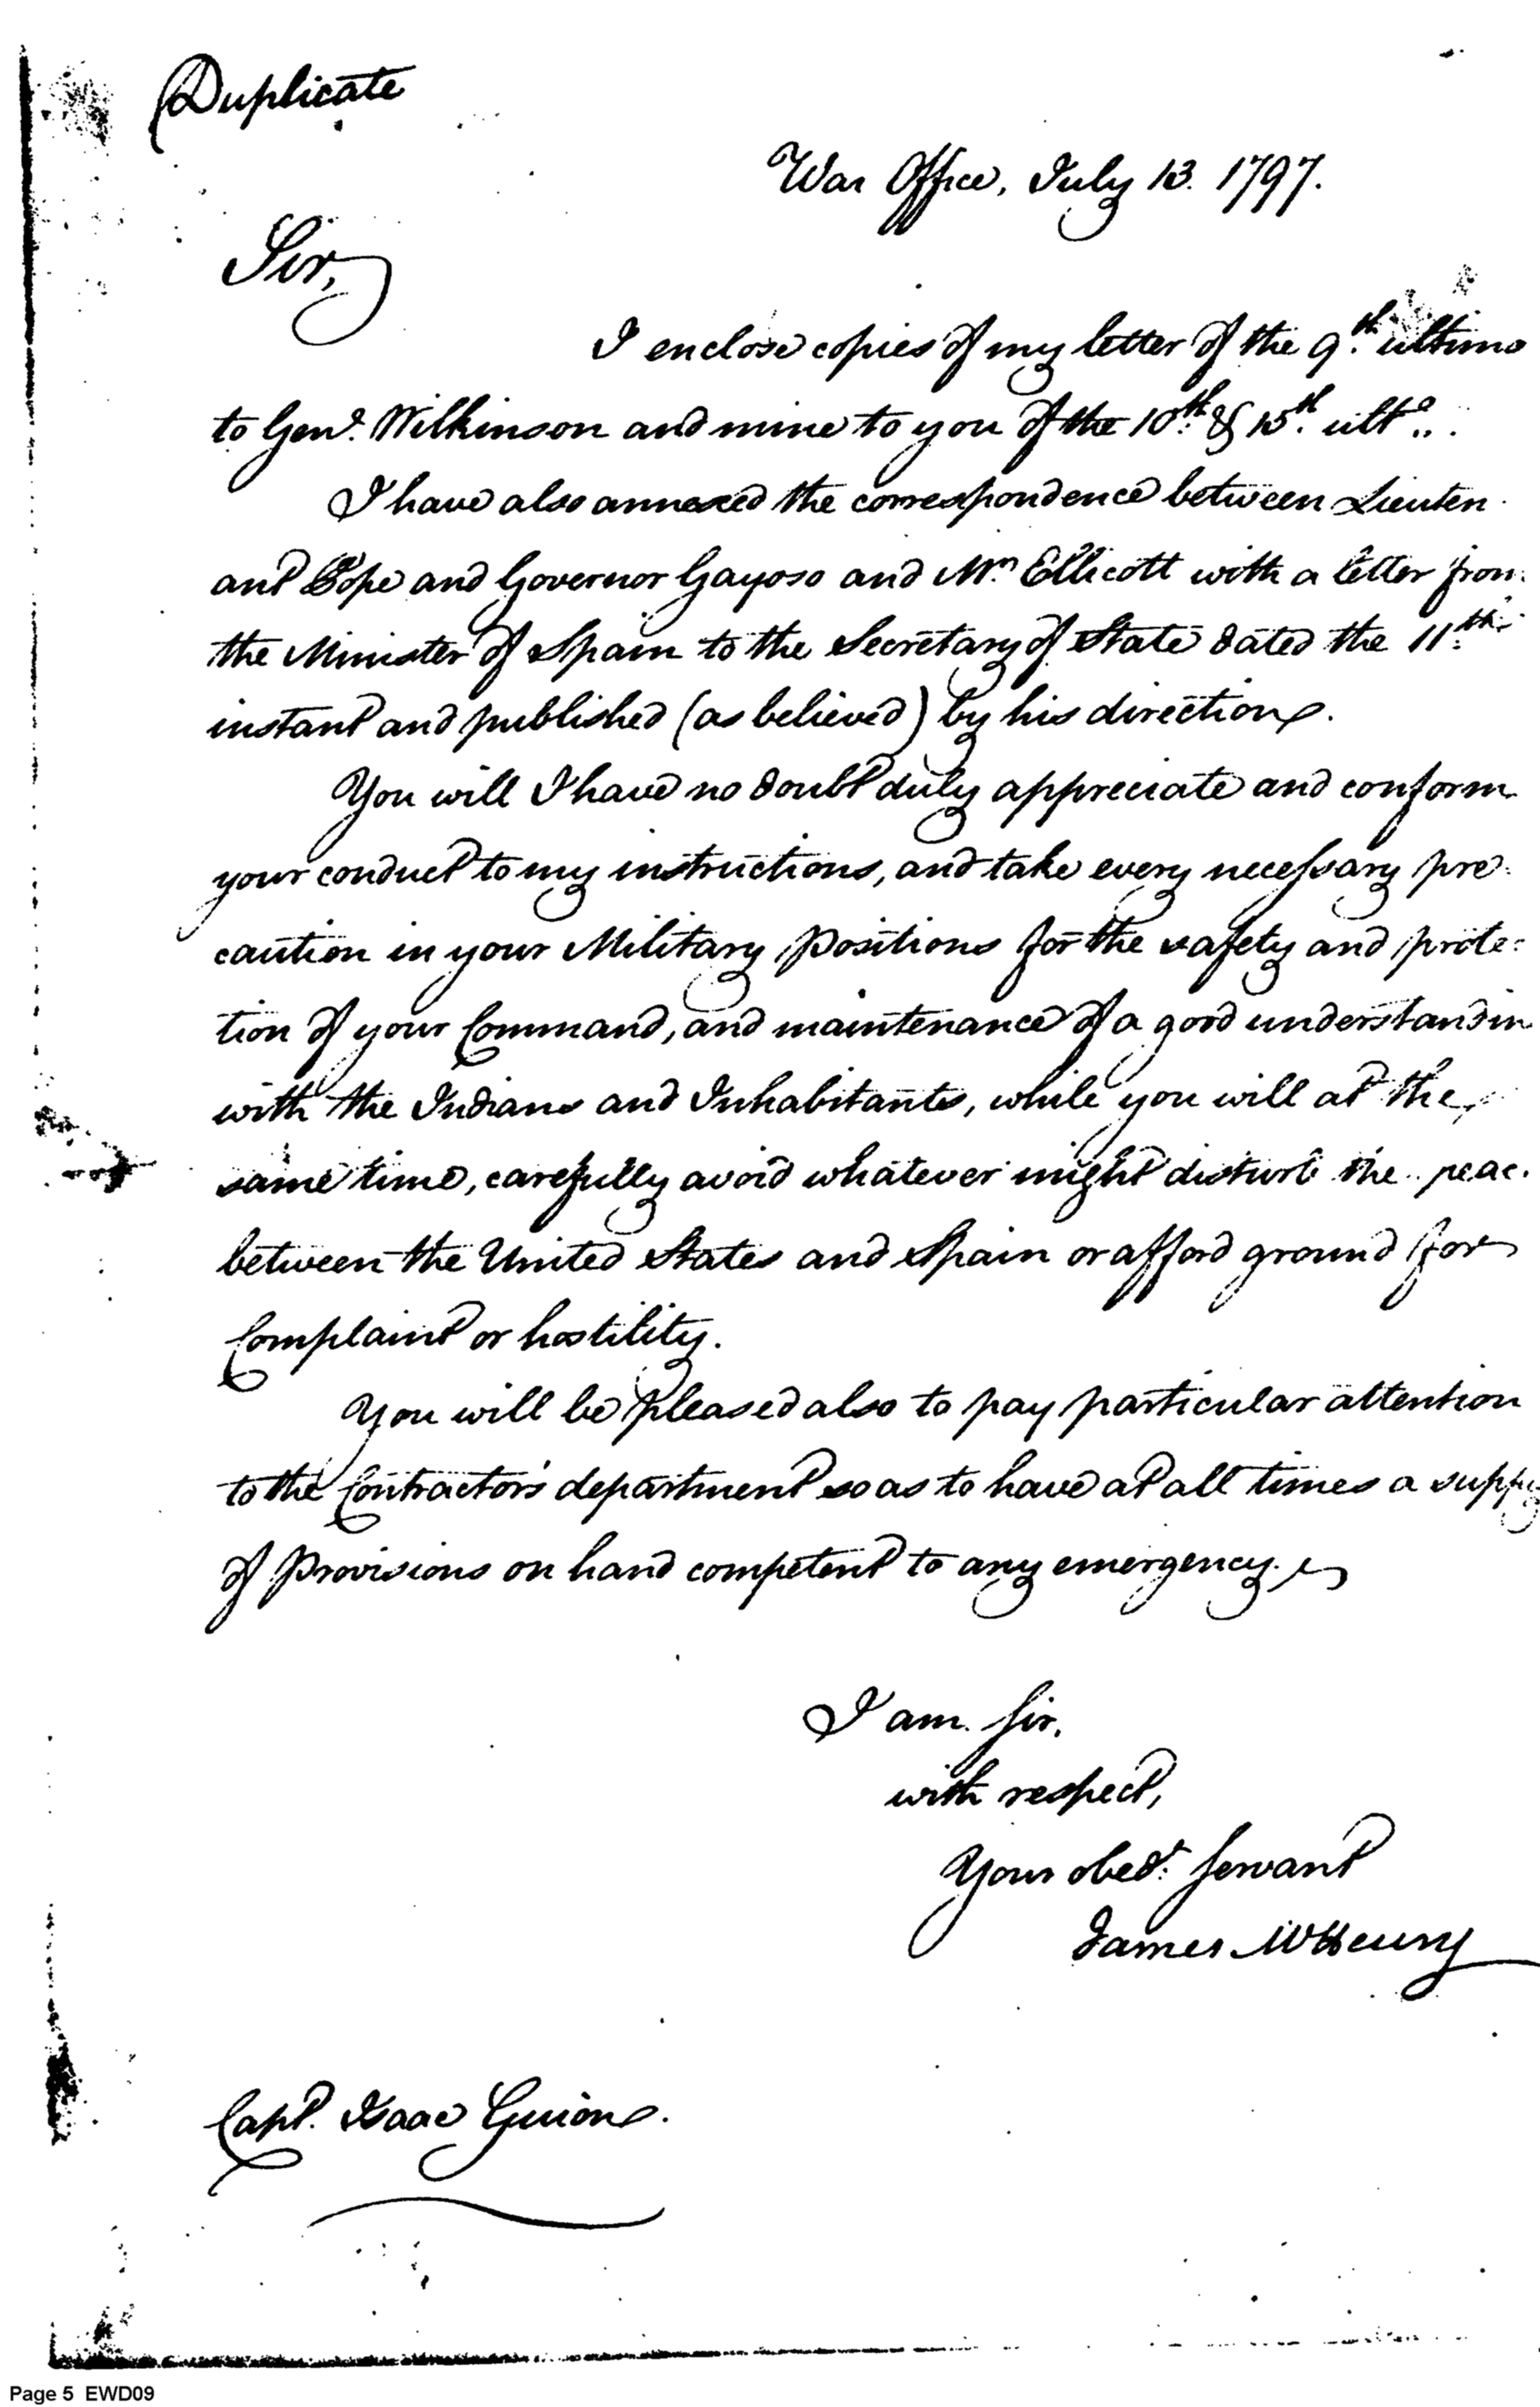 Duplicate
War Office, July 13. 1797.
Sir,
I enclose copies of my letter of the 9th. ultimo
to Genl. Wilkinson and mine to you of the 10th. & 15th. ulto.
I have also annexed the correspondence between Lieuten
ant Pope and Governor Gayoso and Mr. Ellicott with a letter from
the Minister of Spain to the Secretary of State dated the 11th.
instant and published (as believed) by his direction.
You will I have no doubt duly appreciate and conform
your conduct to my instructions, and take every necessary pre
caution in your Military Positions for the safety and prote
tion of your Command, and maintenance of a good understandin
with the Indians and Inhabitants, while you will at the
same time, carefully avoid whatever might disturb the peac
between the United States and Spain or afford ground for
Complaint or hostility.
You will be pleased also to pay particular attention
to the Contractor's department so as to have at all times a supply
of Provisions on hand competent to any emergency.
I am Sir.
with respect,
Your obedt. Servant
James McHenry
Capt. Isaac Guion.
Page 5 EWD09